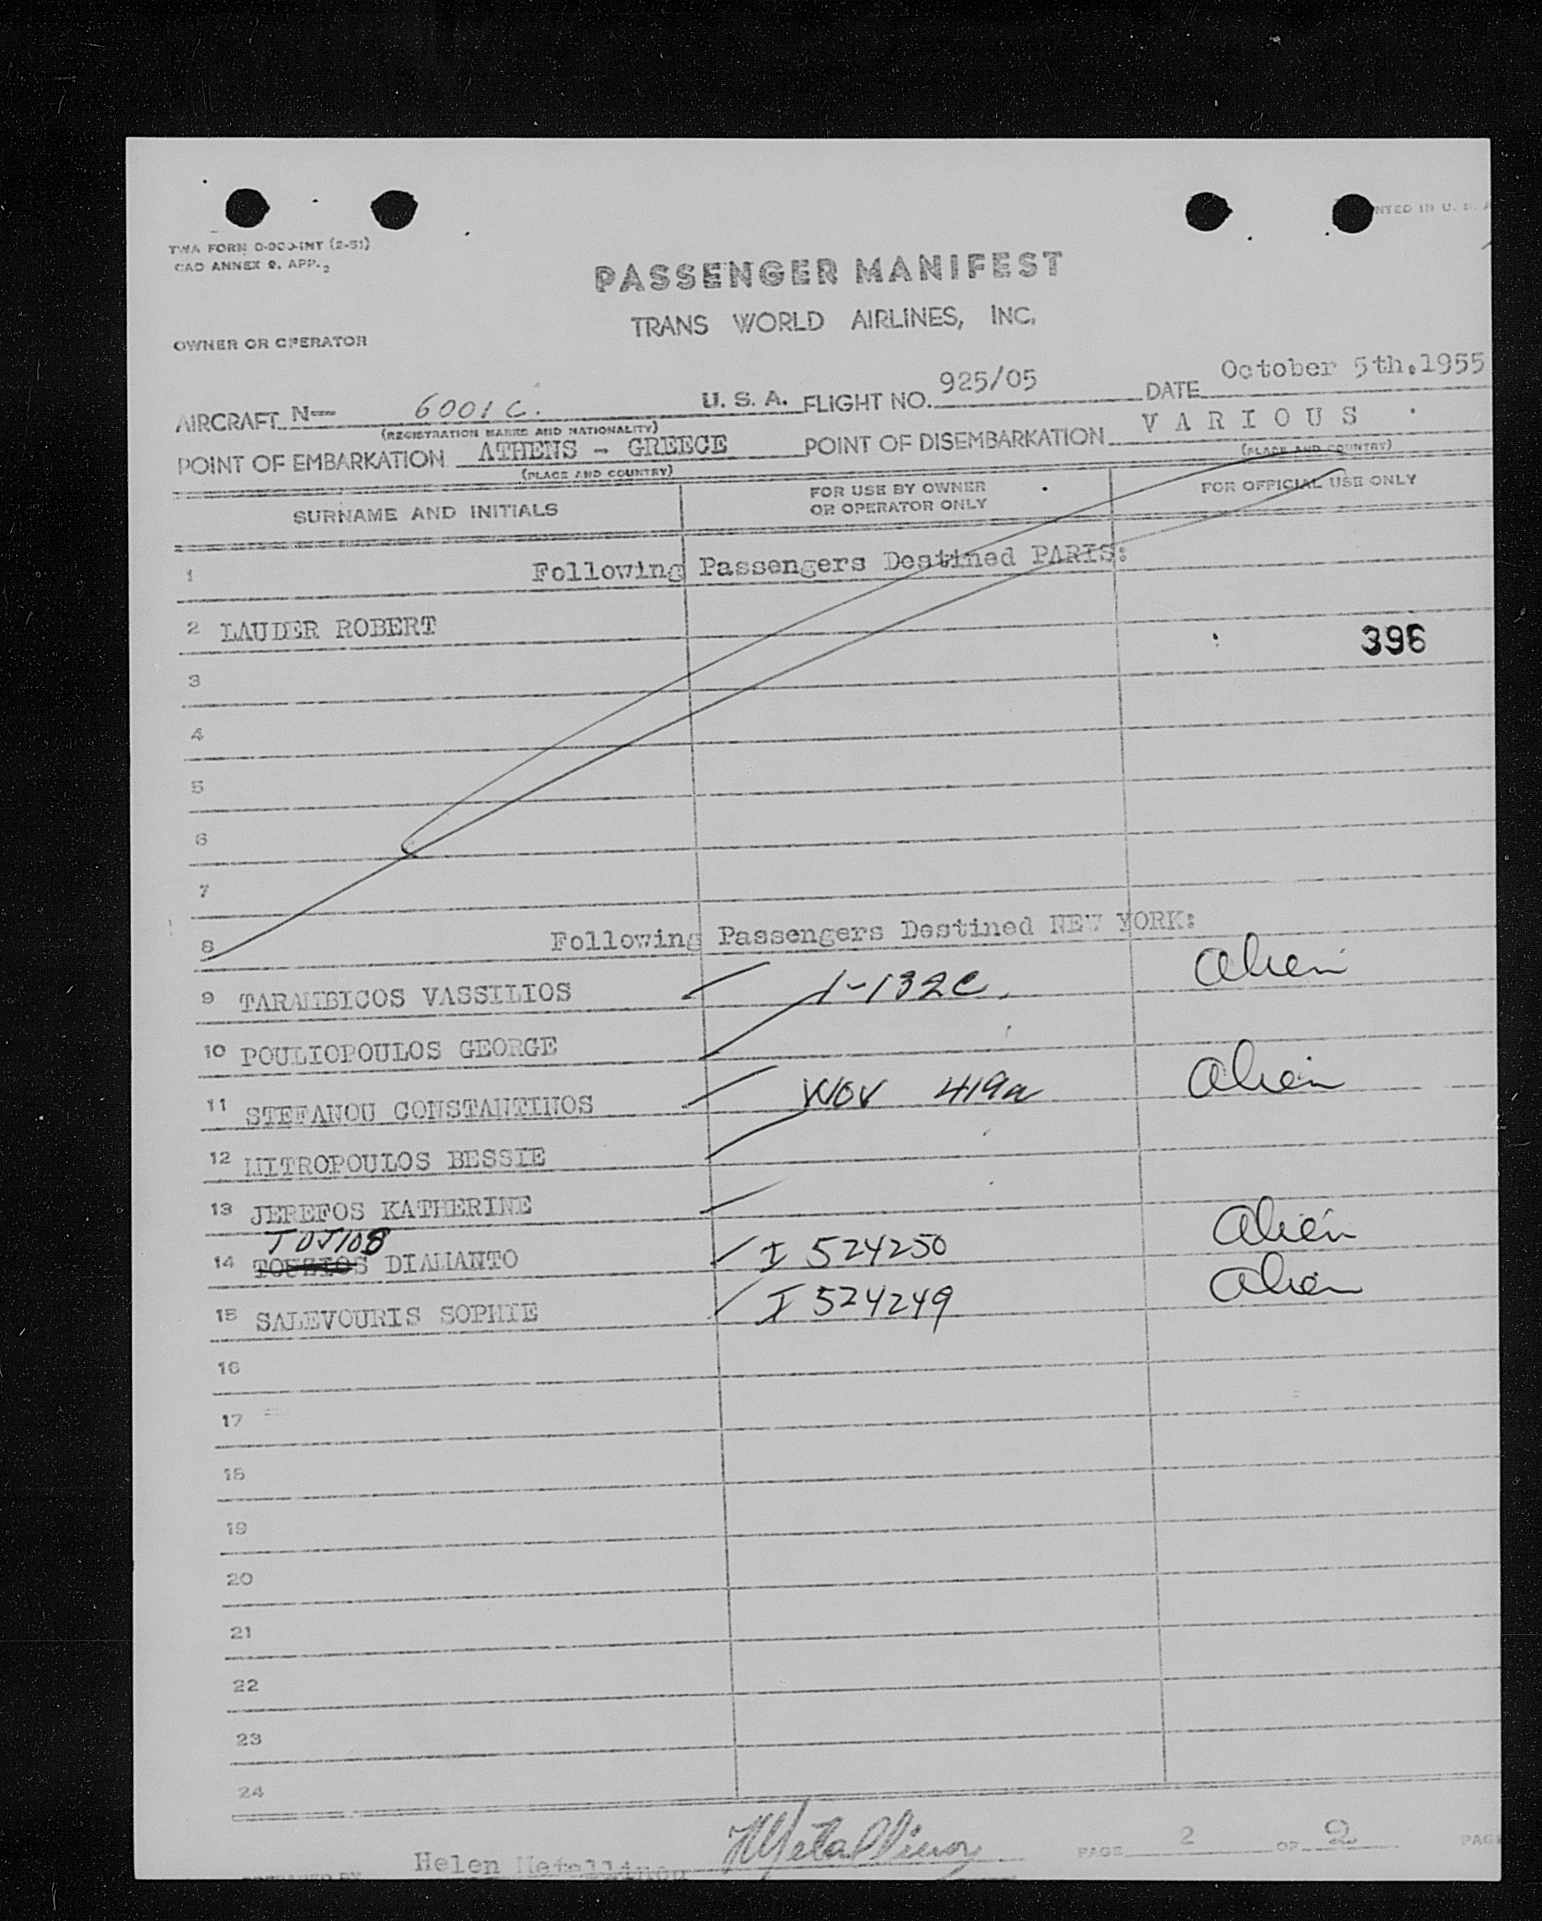 PRINTED IN U. S. A
TWA FORM 0-900-INT (2-51)
CAO ANNEX 9. APP. 2
PASSENGER MANIFEST
TRANS WORLD AIRLINES, INC.
OWNER OR OPERATOR
AIRCRAFT N— 6001 C. U. S. A. FLIGHT NO. 925/05 DATE October 5th.1955
(REGISTRATION MARKS AND NATIONALITY)
POINT OF EMBARKATION ATHENS - GREECE POINT OF DISEMBARKATION V A R I O U S
(PLACE AND COUNTRY) (PLACE AND COUNTRY)
SURNAME AND INITIALS FOR USE BY OWNER OR OPERATOR ONLY FOR OFFICIAL USE ONLY
1 Following Passengers Destined PARIS:
2 LAUDER ROBERT 396
3
4
5
6
7
8 Following Passengers Destined NEW YORK:
9 TARAMBICOS VASSILIOS 1-132C. Alien
10 POULIOPOULOS GEORGE
11 STEFANOU CONSTANTINOS WOV 419a Alien
12 MITROPOULOS BESSIE
13 JEREFOS KATHERINE
TOJIOS
14 TOUZIOS DIAMANTO I 524250 Alien
15 SALEVOURIS SOPHIE I 524249 Alien
16
17
18
19
20
21
22
23
24
PREPARED BY Helen Metallinou HMetallinou PAGE 2 OF 2 PAG